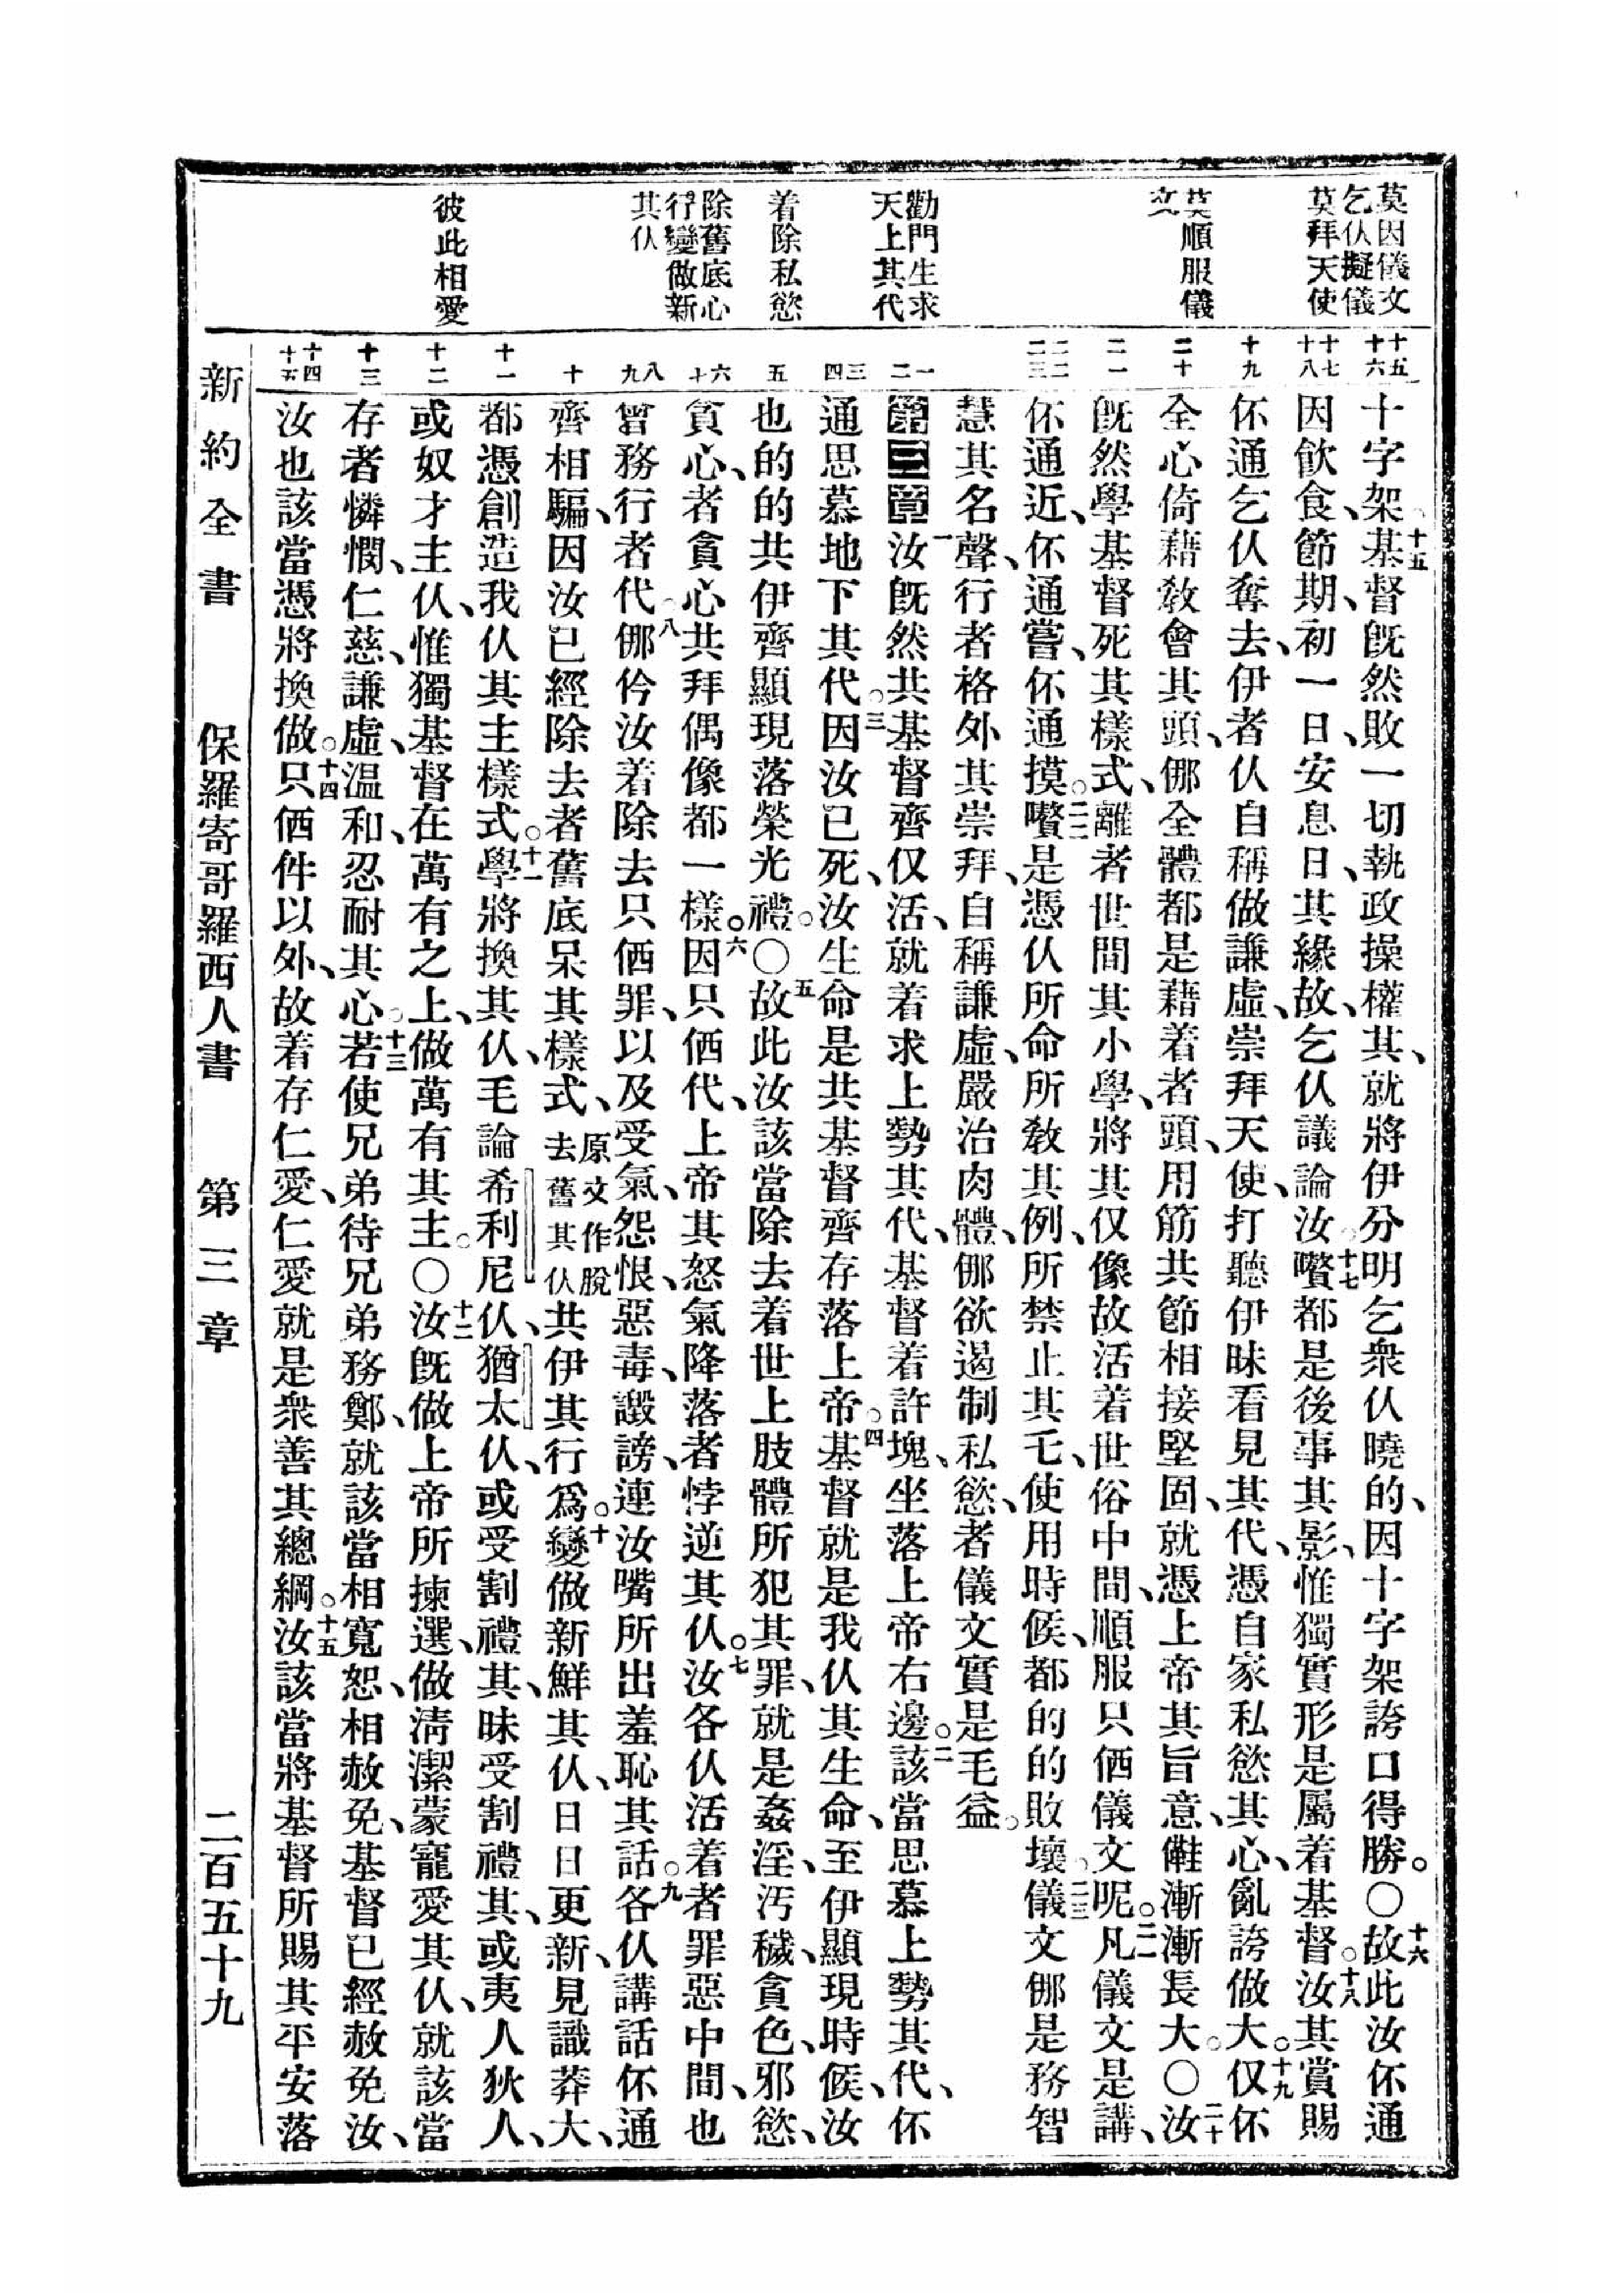 莫因儀文
乞仏擬儀
莫拜天使
莫順服儀
文
勸門生求
天上其代
着除私慾
除舊底心
行變做新
其仏
彼此相愛
十五
十六
十七
十八
十九
二十
二一
二二
二三
一
二
三
四
五
六
七
八
九
十
十一
十二
十三
十四
十五
十字架、十五基督既然敗一切執政操權其、就將伊分明乞衆仏曉的、因十字架誇口得勝。〇十六故此汝伓通
因飮食、節期、初一日、安息日、其緣故、乞仏議論汝。十七囋都是後事其影、惟獨實形是屬着基督。十八汝其賞賜
伓通乞仏奪去、伊者仏自稱做謙虛、崇拜天使、打聽伊昧看見其代、憑自家私慾其心、亂誇做大。十九仅伓
全心倚藉敎會其頭、㑚全體都是藉着者頭、用筋共節相接堅固、就憑上帝其旨意、㑚漸漸長大。〇二十汝
既然學基督死其樣式、離者世間其小學、將其仅像故活着世俗中間、順服只佰儀文呢。二一凡儀文是講、
伓通近、伓通嘗、伓通摸。二二囋是憑仏所命所敎其例、所禁止其乇、使用時候、都的的敗壞。二三儀文㑚是務智
慧其名聲、行者格外其崇拜、自稱謙虛、嚴治肉體、㑚欲遏制私慾、者儀文實是毛益。
第三章一汝既然共基督齊仅活、就着求上勢其代、基督着許塊、坐落上帝右邊。二該當思慕上勢其代、伓
通思慕地下其代。三因汝已死、汝生命是共基督齊存落上帝。四基督就是我仏其生命、至伊顯現時候、汝
也的的共伊齊顯現落榮光禮。〇五故此汝該當除去着世上肢體所犯其罪、就是姦淫、汚穢、貪色、邪慾、
貪心、者貪心共拜偶像都一樣。六因只佰代、上帝其怒氣降落者悖逆其仏。七汝各仏活着者罪惡中間、也
曾務行者代。八㑚仱汝着除去只佰罪、以及受氣、怨恨、惡毒、譭謗、連汝嘴所出羞恥其話。九各仏講話伓通
齊相騙、因汝已經除去者舊底呆其樣式、原文作脫去舊其仏共伊其行爲。十變做新鮮其仏、日日更新、見識莽大、
都憑創造我仏其主樣式。十一學將換其仏、毛論希利尼仏、猶太仏、或受割禮其、昧受割禮其、或夷人狄人、
或奴才主仏、惟獨基督在萬有之上、做萬有其主。〇十二汝既做上帝所揀選、做淸潔蒙寵愛其仏、就該當
存者憐憫、仁慈、謙虛、温和、忍耐其心。十三若使兄弟待兄弟務鄭、就該當相寬恕、相赦免、基督已經赦免汝、
汝也該當憑將換做。十四只佰件以外、故着存仁愛、仁愛就是衆善其總綱。十五汝該當將基督所賜其平安落
新約全書 保羅寄哥羅西人書 第三章 二百五十九